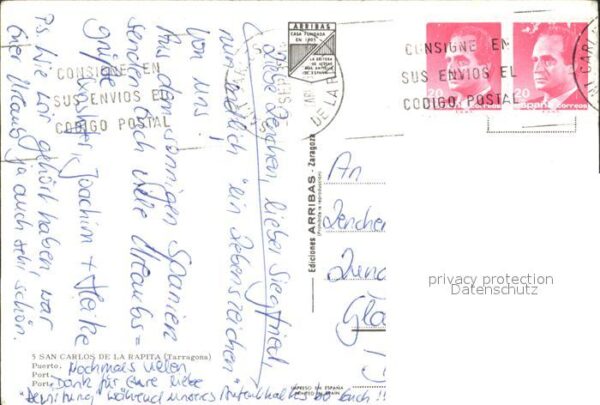 Liebe Lenchen, lieber Siegfried,
nun endlich "ein Lebenszeichen"
von uns!
Aus dem sonnigen Spanien
senden Euch viele Urlaubs=
grüße
Joachim + Heike
P.S. Wie wir gehört haben, war
Euer Urlaub ja auch sehr schön.
5 SAN CARLOS DE LA RAPITA (Tarragona)
Puerto.
Port.
Port.
Nochmals vielen
Dank für Eure liebe
Bewirtung während unseres Aufenthaltes bei Euch!!
ARRIBAS
CASA FUNDADA
EN 1905
CONSIGNE EN
SUS ENVIOS EL
CODIGO POSTAL
DE LA
CONSIGNE EN
SUS ENVIOS EL
CODIGO POSTAL
20
20
España correos
Ediciones ARRIBAS - Zaragoza
(Prohibida la reproducción)
IMPRESO EN ESPAÑA
PRINTED IN SPAIN
An
privacy protection
Datenschutz